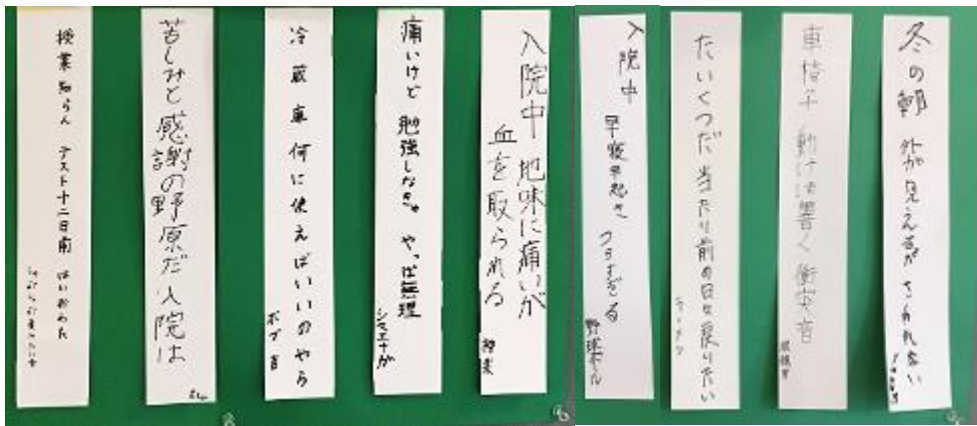 冬の朝 外が見えるが さわれない
車椅子 動けば響く 衝突音
眼鏡
たいくつだ 当たり前の日々戻りたい
ラーメン
入院中 早寝早起き つらすぎる
野球ボール
入院中 地味に痛いが
血を取られる
痛いけど 勉強しなきゃ やっぱ無理
シマエナガ
冷蔵車 何に使えばいいのやら
ボブ吉
苦しみと感謝の野原だ 入院は
授業知らん テスト十二日前 はいおわた